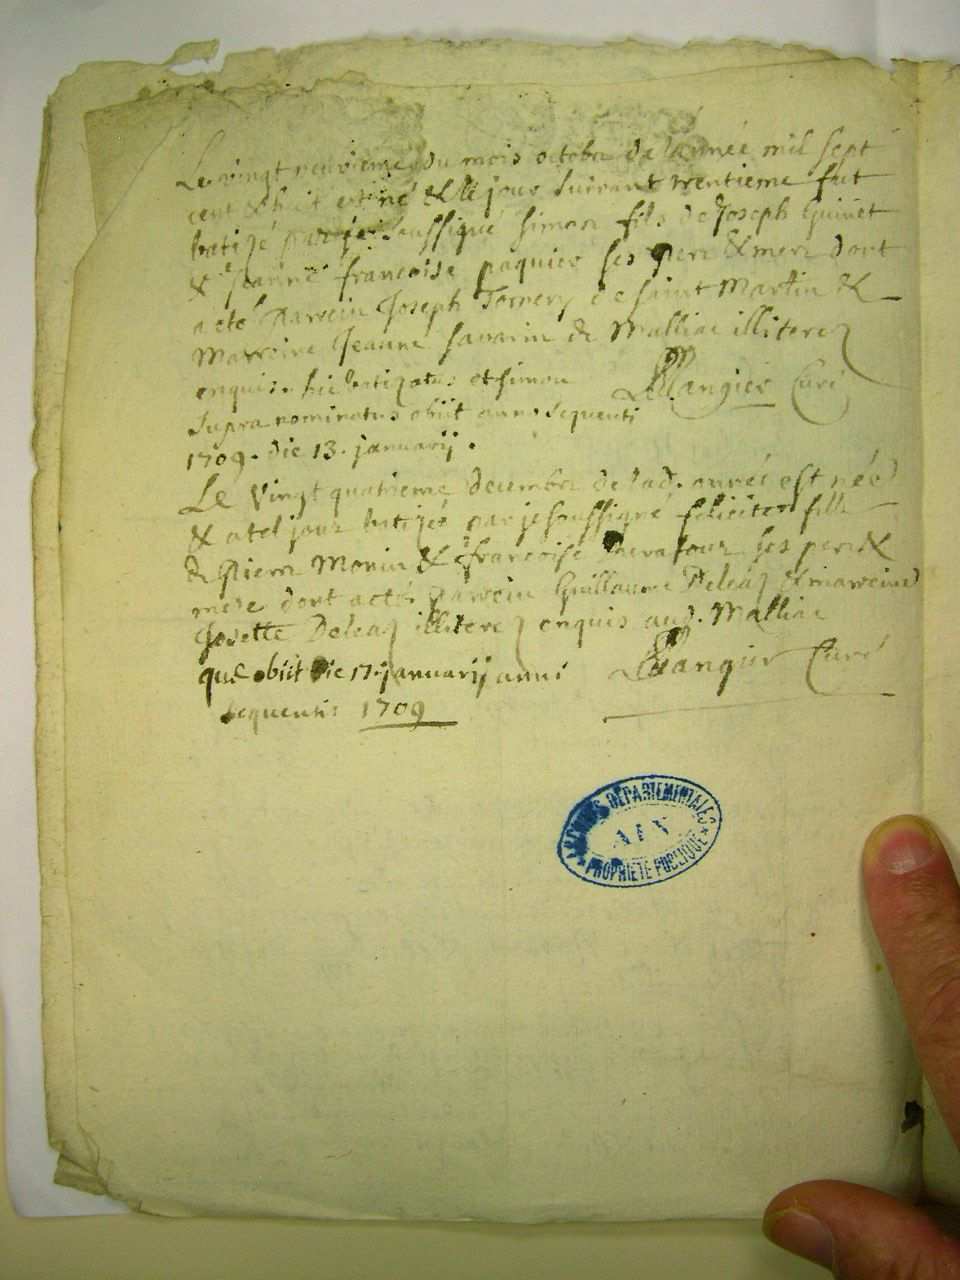 Le vingt neuvieme du mois octobre de l'année mil sept
cent & huit est né & le jour suivant trentieme fut
batizé par je soussigné simon fils de Joseph Guinet
& Jeanne francoise paquier ses pere & mere dont
a eté parrein Joseph de saint Martin &
Marreine Jeanne savarin de Malliac illiterez
enquis. hic batizatus et simon
L Mangier Curé
supra nominatus obiit anno sequenti
1709. die 13. januarij.
Le vingt quatrieme decembre de lad. année est née
& a tel jour batizée par je soussigné felicite fille
de pierre Monin & francoise ses pere &
mere dont a eté parrein Guillaume Deleaz & marreine
Josette Deleaz illiterez enquis aud. Malliac
quæ obiit die 17. januarij anni
L Mangier Curé
sequentis 1709
ARCHIVES DÉPARTEMENTALES
AIN
PROPRIÉTÉ PUBLIQUE